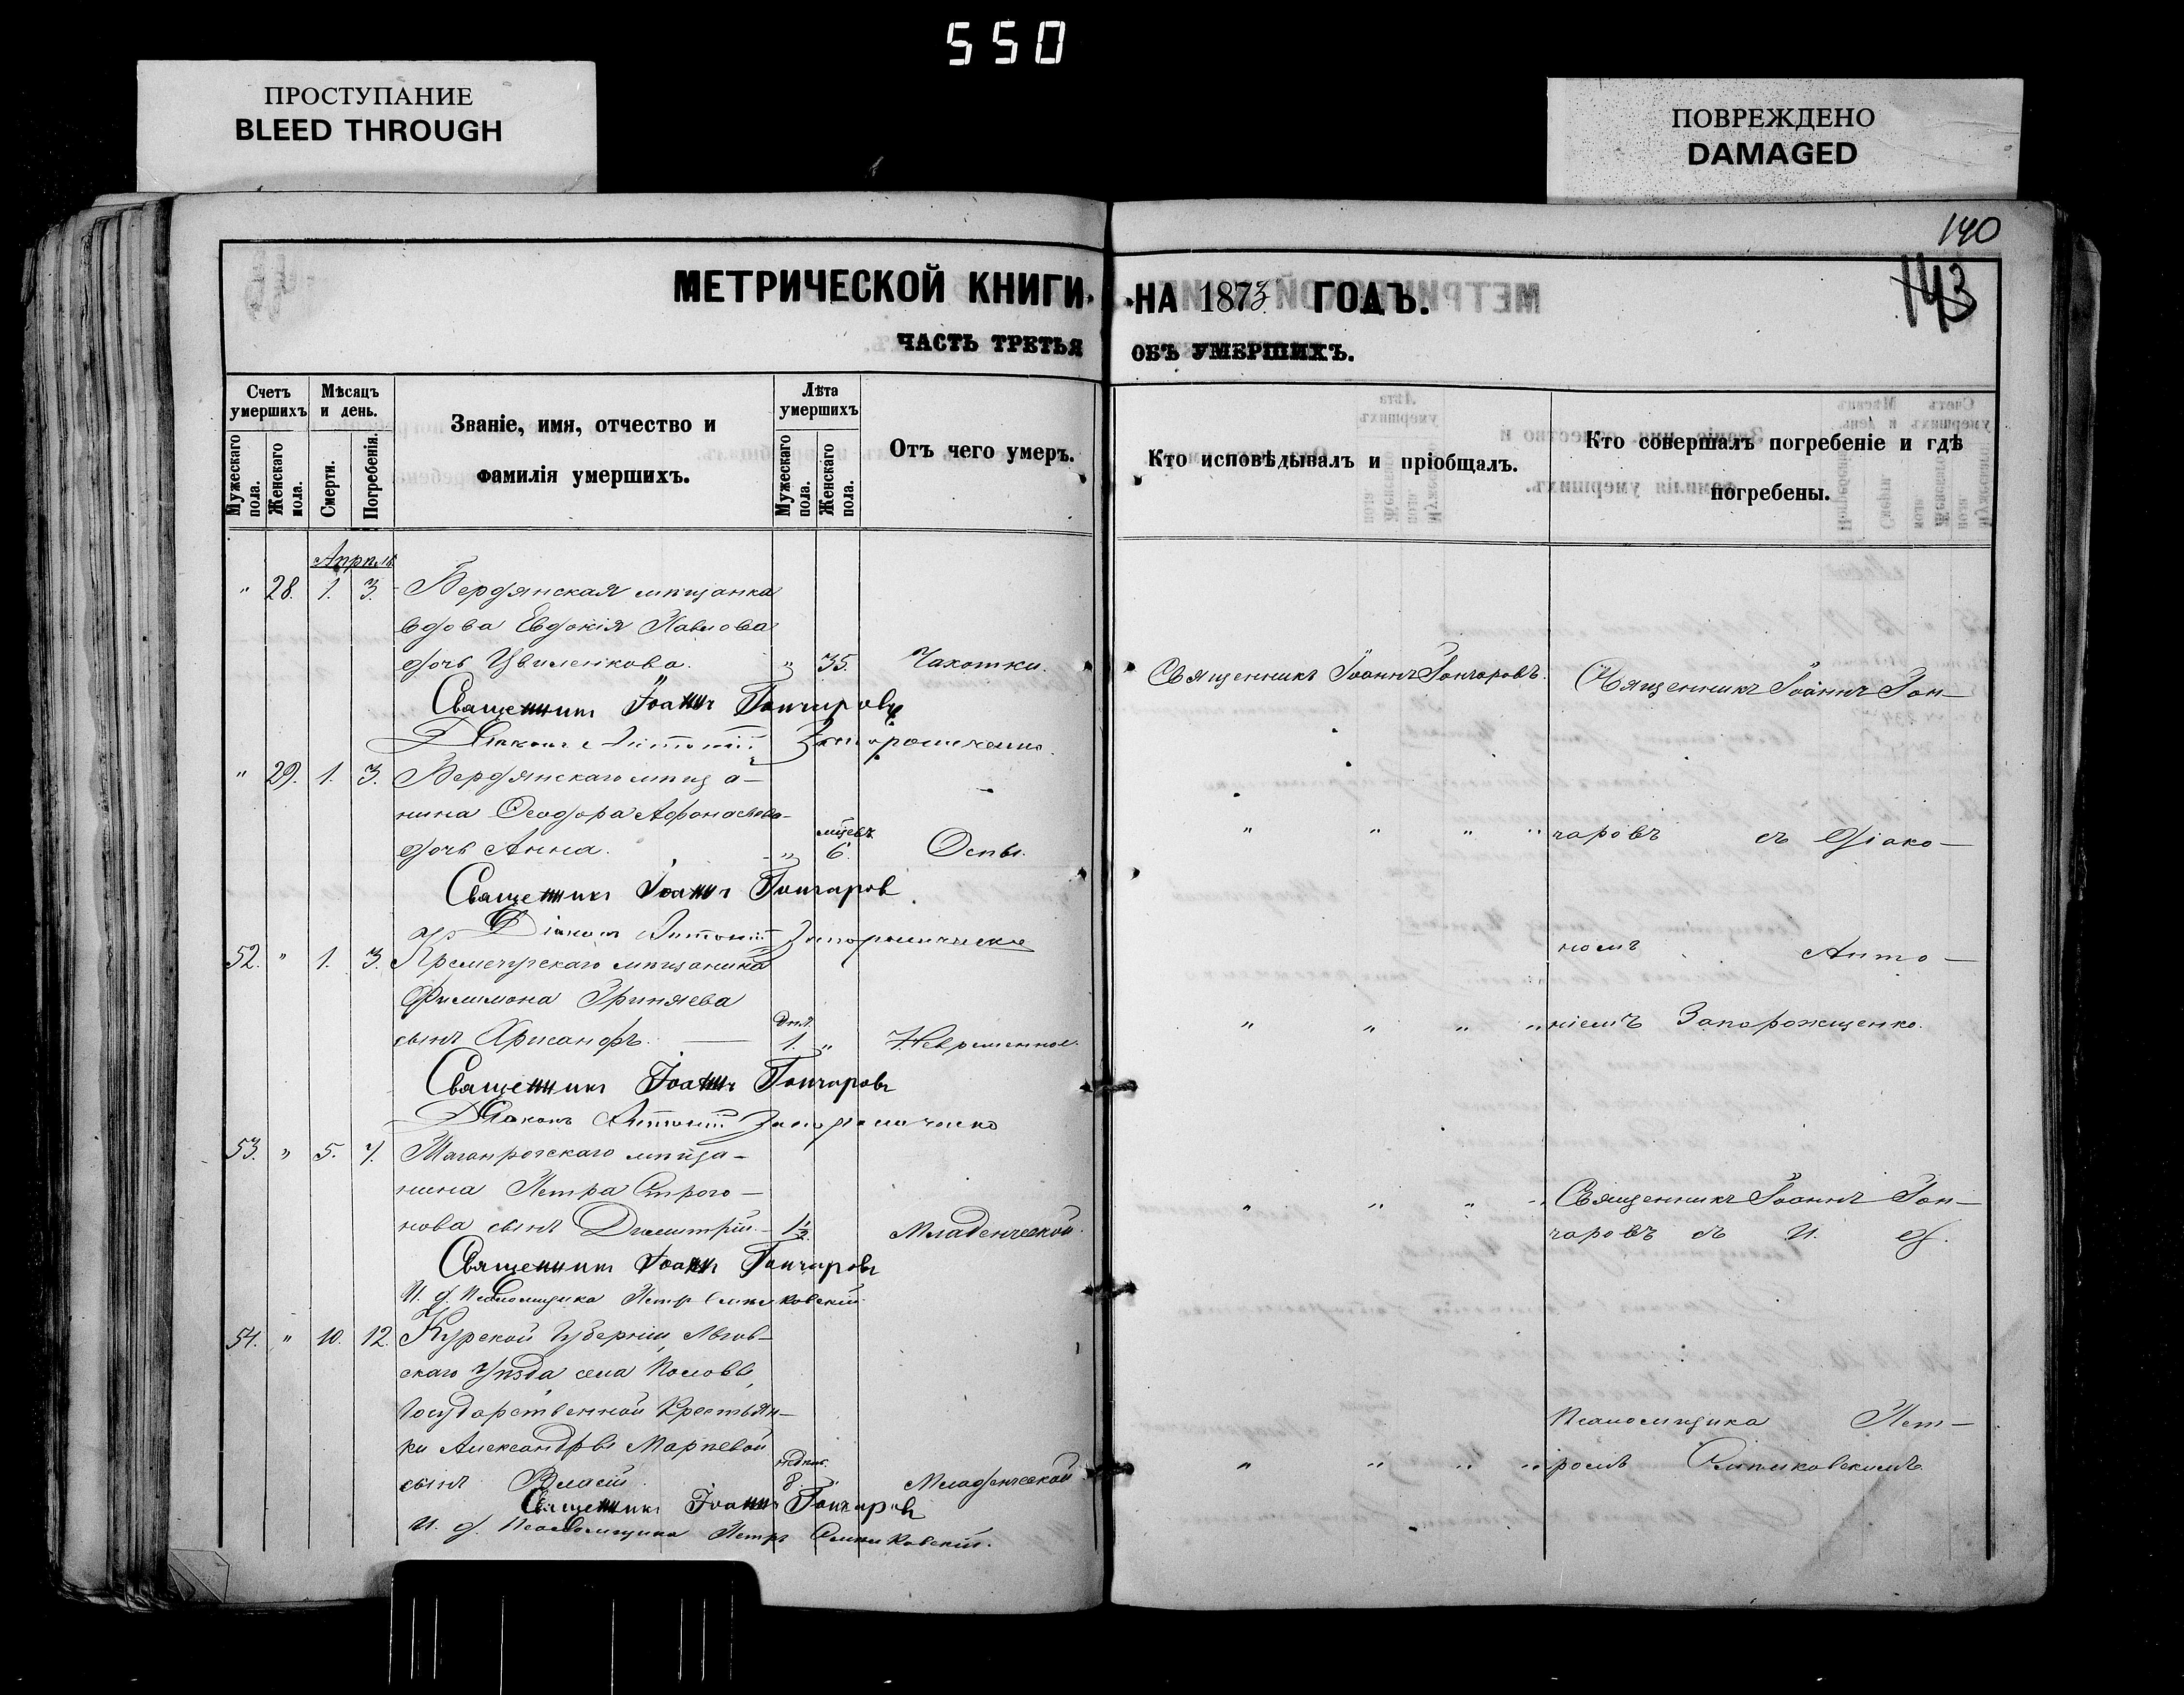 550
ПРОСТУПАНИЕ
BLEED THROUGH
ПОВРЕЖДЕНО
DAMAGED
140
143
МЕТРИЧЕСКОЙ КНИГИ НА 1873 ГОДЪ.
ЧАСТЬ ТРЕТЬЯ ОБЪ УМЕРШИХЪ.
Счетъ умершихъ
Мужескаго пола.
Женскаго пола.
Мѣсяцъ и день.
Смерти.
Погребенія.
Званіе, имя, отчество и
фамилія умершихъ.
Лѣта умершихъ
Мужескаго пола.
Женскаго пола.
Отъ чего умеръ.
Кто исповѣдывалъ и пріобщалъ.
Кто совершалъ погребеніе и гдѣ
погребены.
Апрѣль
" 28. 1. 3. Бердянская мѣщанка
вдова Евдокія Павлова
дочь Цвиленкова. " 35. Чахотки. Священникъ Іоаннъ Гончаровъ. Священникъ Іоаннъ Гон-
Священникъ Іоаннъ Гончаровъ
Діаконъ Антоній Запорощенко.
" 29. 1. 3. Бердянскаго мѣща-
нина Ѳеодора Афонасьева
дочь Анна. " мѣсяцъ 6. Оспы. " " " " чаровъ съ діако-
Священникъ Іоаннъ Гончаров
Діаконъ Антоній
номъ Анто-
52. " 1. 3. Кременчугскаго мѣщанина
Филимона Гриняева
сынъ Хрисанфъ. дня 1. " Невременное. " " " " ніемъ Запорожщенко.
Священникъ Іоаннъ Гончаровъ
Діаконъ Антоній
53. " 5. 7. Таганрогскаго мѣща-
нина Петра Строго-
нова сынъ Димитрій 1½. Младенческой. " " " " Священникъ Іоаннъ Гон-
чаровъ съ И. д.
Священникъ Іоаннъ Гончаровъ
И. д. Псаломщика Петръ
54. " 10. 12. Курской Губерніи, Льгов-
скаго Уѣзда села
Государственной Крестьян-
ки Александры Марѣевой
Псаломщика Пет-
сынъ Власій недѣль 8. Младенческой " " " " ромъ
Священникъ Іоаннъ Гончаровъ
И. д. Псаломщика Петръ